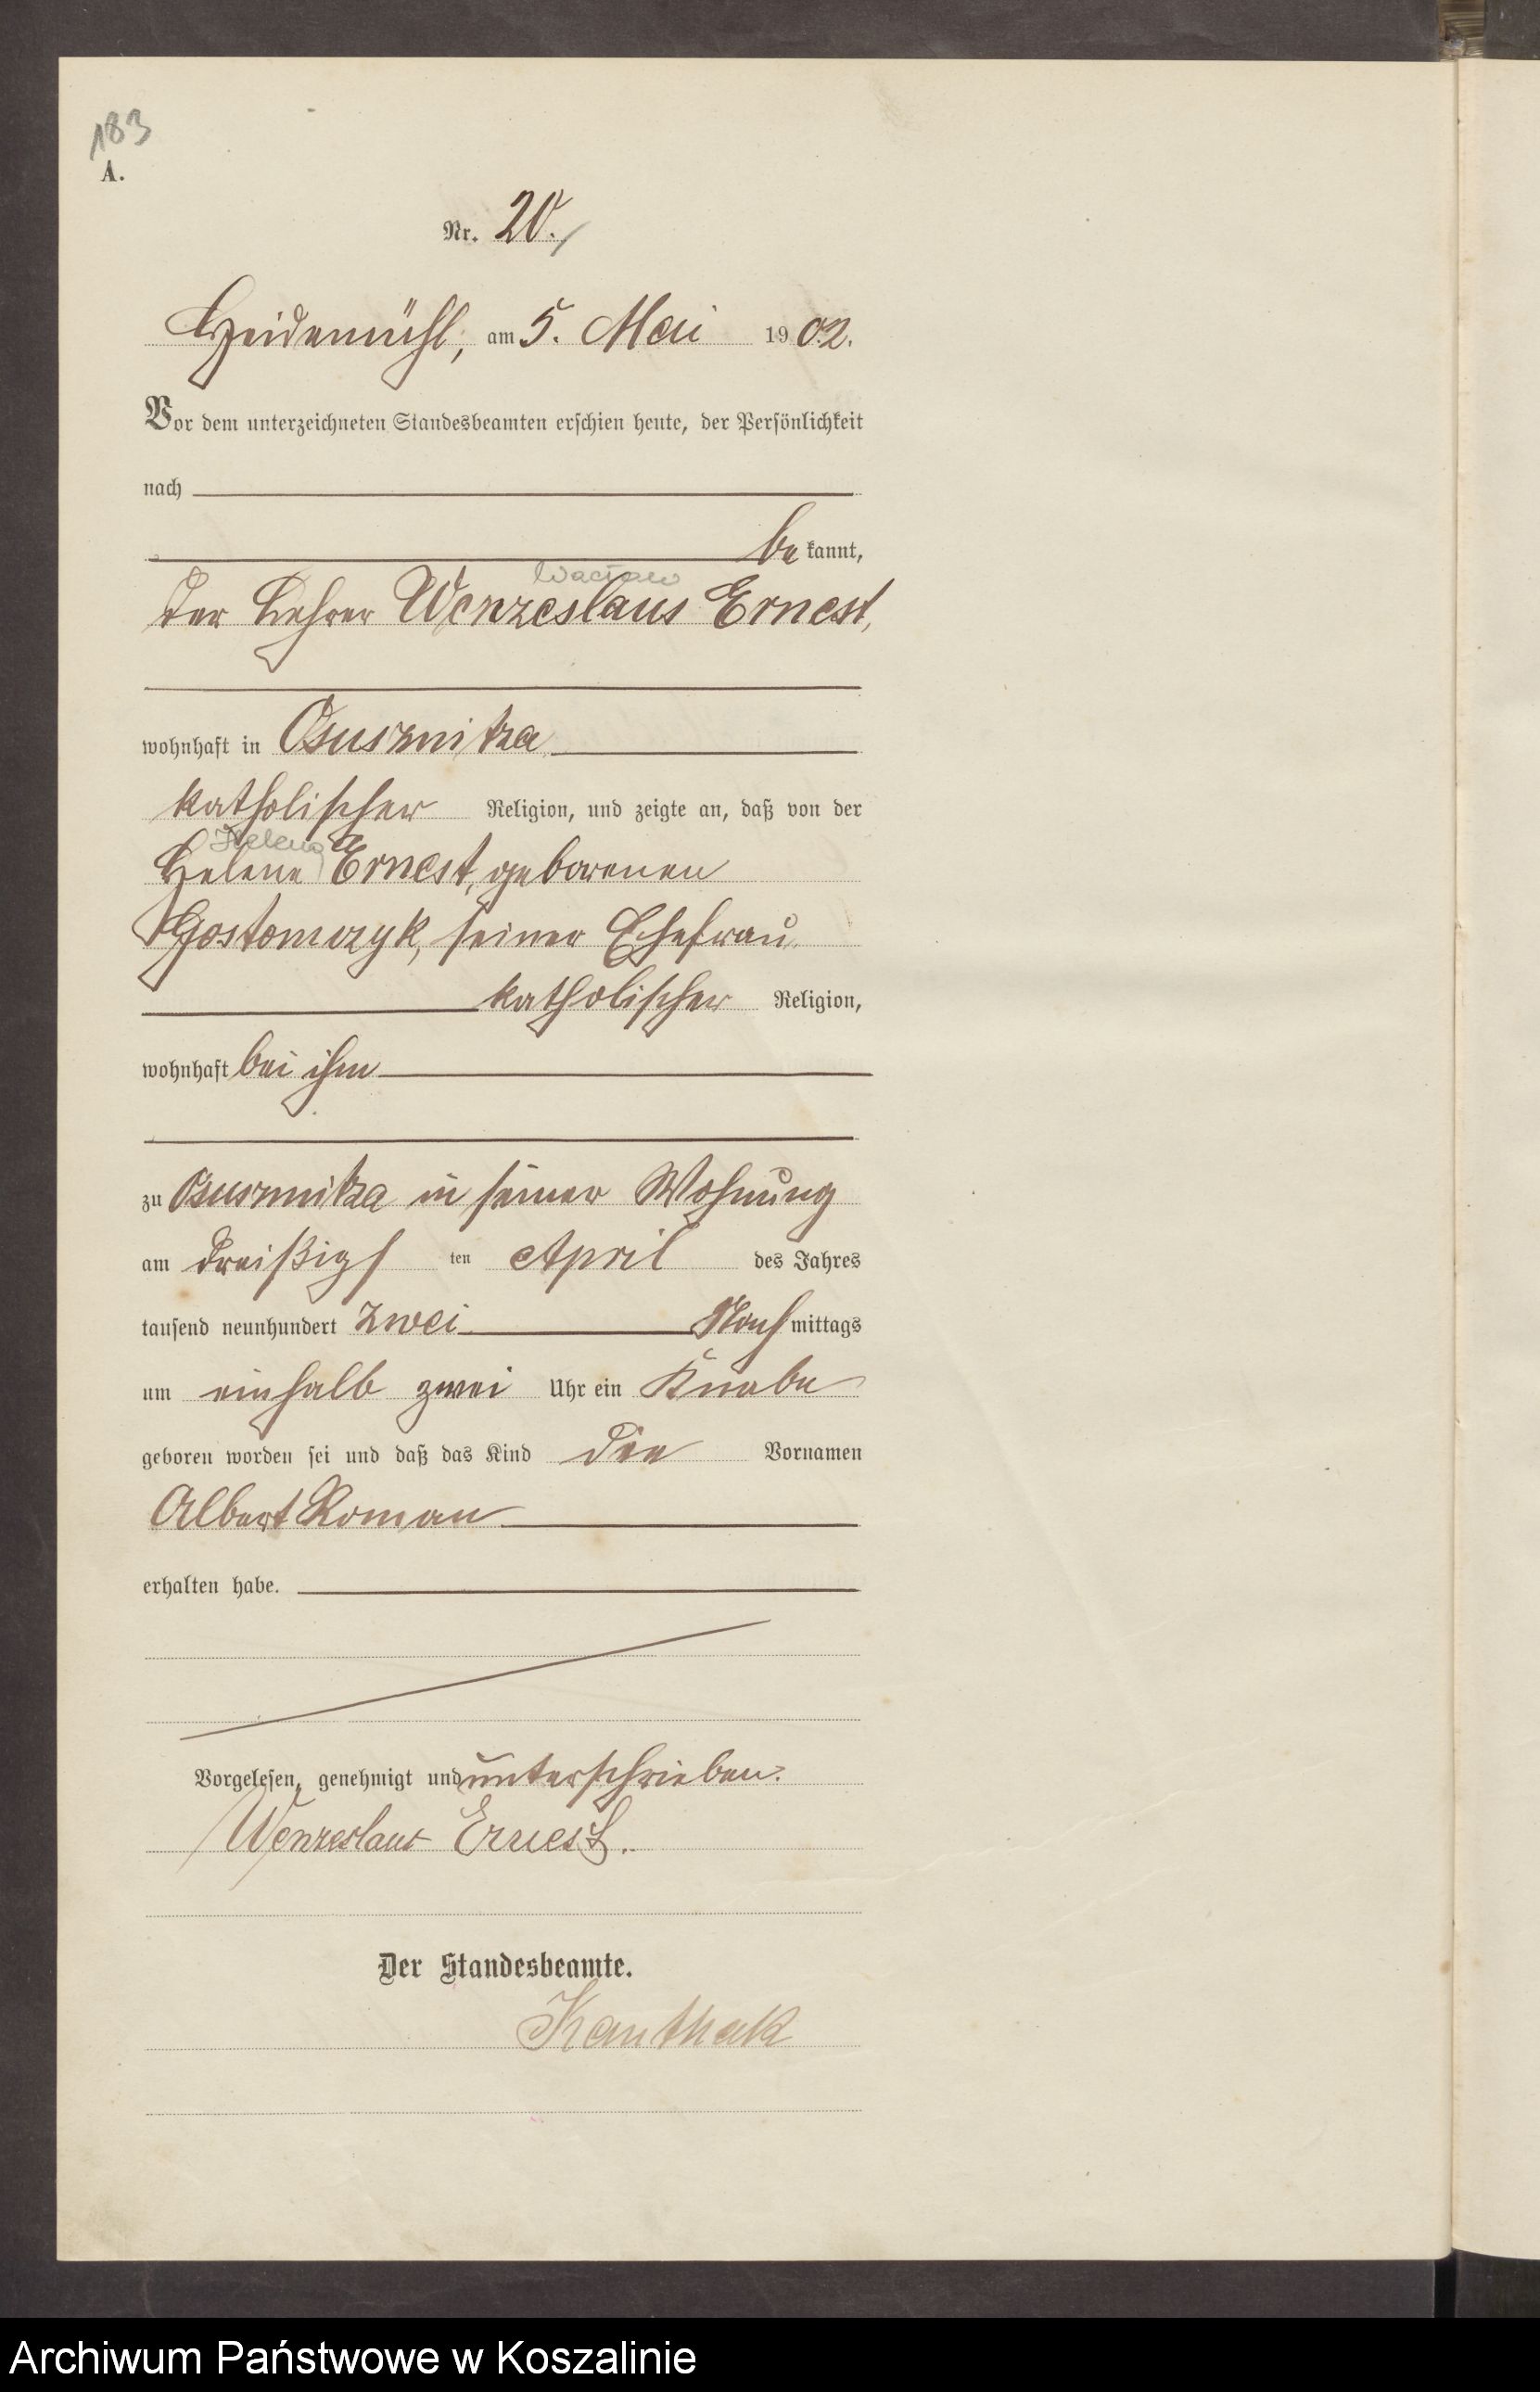 183
A.
Nr. 20.
Heidemühl, am 5. Mai 1902.
Vor dem unterzeichneten Standesbeamten erschien heute, der Persönlichkeit
nach
bekannt,
Wacław
der Lehrer Wenzeslaus Ernest,
wohnhaft in Osusznitza
katholischer Religion, und zeigte an, daß von der
Helena
Helene Ernest, geborenen
Gostomczyk, seiner Ehefrau
katholischer Religion,
wohnhaft bei ihm
zu Osusznitza in seiner Wohnung
am dreißigsten April des Jahres
tausend neunhundert zwei Nachmittags
um einhalb zwei Uhr ein Knabe
geboren worden sei und daß das Kind die Vornamen
Albert Roman
erhalten habe.
Vorgelesen, genehmigt und unterschrieben.
Wenzeslaus Ernest.
Der Standesbeamte.
Kanthak
Archiwum Państwowe w Koszalinie